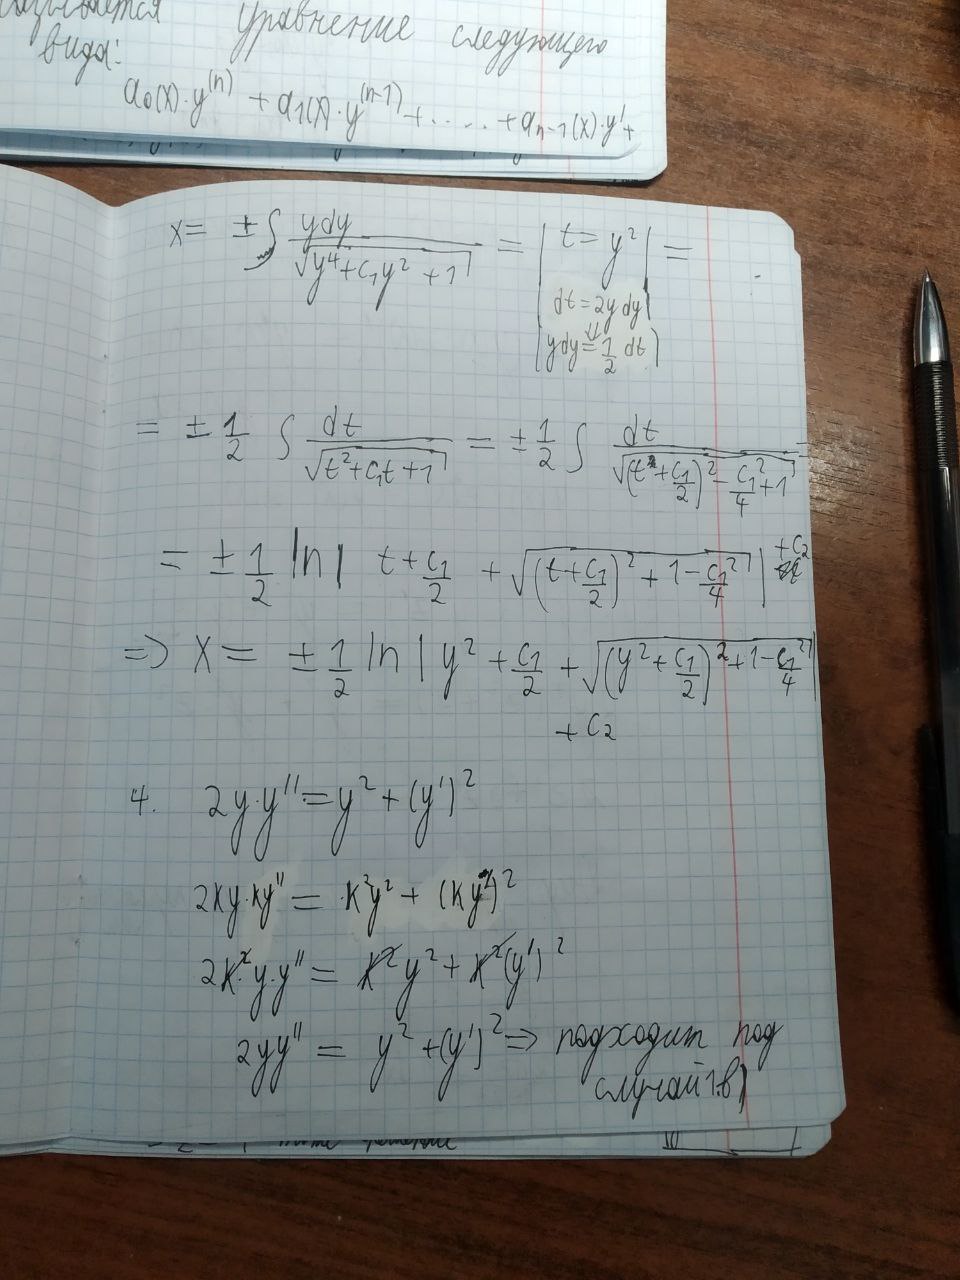 уравнение следующего
вида:
a₀(x)·y⁽ⁿ⁾ + a₁(x)·y⁽ⁿ⁻¹⁾ + ..... + aₙ₋₁(x)·y' +
x = ± ∫ ydy / √(y⁴ + c₁y² + 1) = | t = y² | =
dt = 2y dy
⇓
ydy = 1/2 dt
= ± 1/2 ∫ dt / √(t² + c₁t + 1) = ± 1/2 ∫ dt / √((t + c₁/2)² - c₁²/4 + 1) =
= ± 1/2 ln | t + c₁/2 + √((t + c₁/2)² + 1 - c₁²/4) | + c₂
=> X = ± 1/2 ln | y² + c₁/2 + √((y² + c₁/2)² + 1 - c₁²/4) |
+ c₂
4. 2y·y'' = y² + (y')²
2ky·ky'' = k²y² + (ky')²
2k²·y·y'' = k²y² + k²(y')²
2yy'' = y² + (y')² => подходит под
случай 1.в)